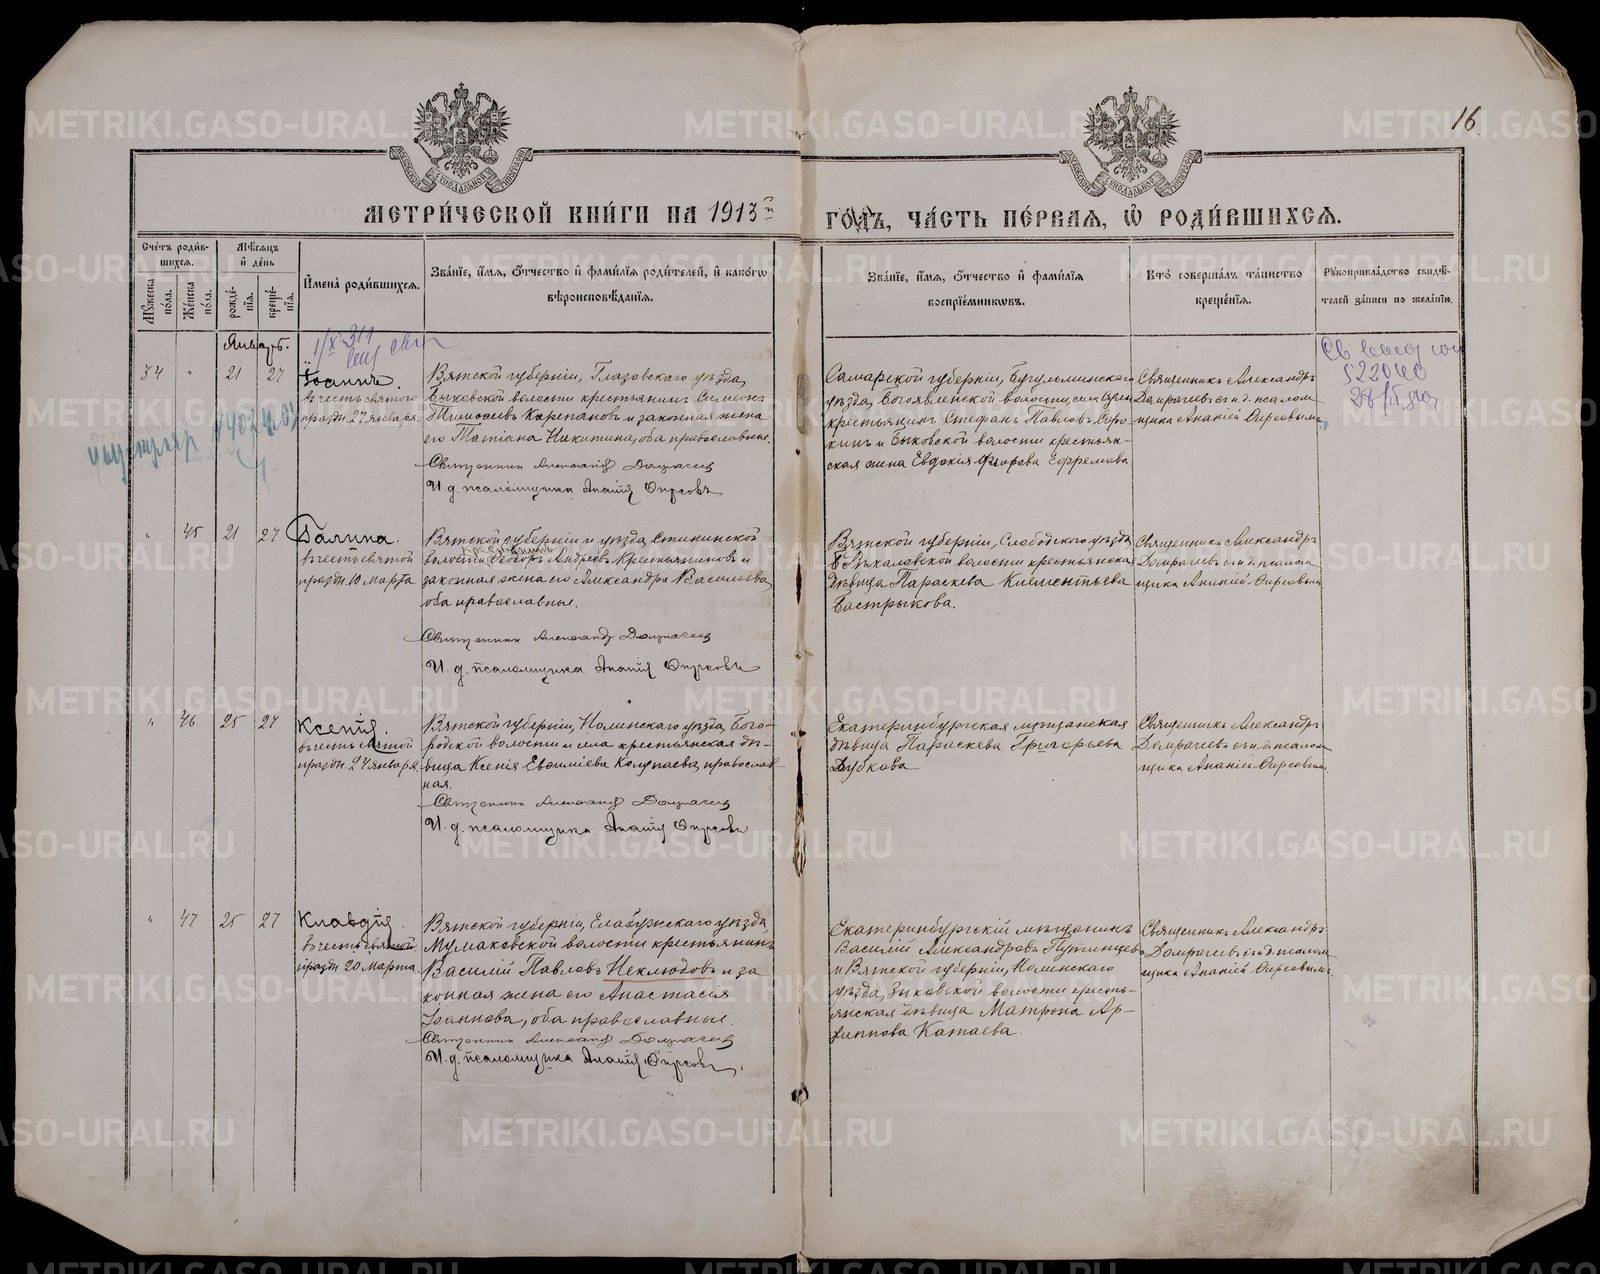 16
МЕТРИ́ЧЕСКОЙ КНИ́ГИ НА 1913й ГО́ДЪ, ЧА́СТЬ ПЕ́РВАЯ, Ѽ РОДИ́ВШИХСЯ.
Сче́тъ роди́в-
шихся.
Мꙋ́жеска по́ла.
Же́нска по́ла.
Мѣ́сяцъ и де́нь
рожде́нїя.
креще́нїя.
Имена̀ роди́вшихся.
Зва́нїе, и́мя, о́тчество и фами́лїя роди́телей, и како́гѡ
вѣроисповѣ́данїя.
Зва́нїе, и́мя, о́тчество и фами́лїя
воспрїе́мникѡвъ.
Кто̀ соверша́лъ та́инство
креще́нїя.
Рꙋкоприкла́дство свидѣ́-
телей за́писи по жела́нїю.
Январь.
34 " 21 27
Іоаннъ.
въ честь святого
праздн. 27 января.
Вятской губерніи, Глазовскаго уѣзда,
Быковской волости крестьянинъ Симеонъ
Тимоѳеевъ Карепановъ и законная жена
его Татіана Никитина, оба православные.
Священникъ Александръ Домрачевъ
И. д. псаломщика Ананій Ѳирсовъ
Самарской губерніи, Бугульминскаго
уѣзда, Богоявленской волости,
крестьянинъ Стефанъ Павловъ
и Быковской волости крестьян-
ская жена Евдокія Ефремова
Священникъ Александръ
Домрачевъ съ и. д. псалом-
щика Ананіемъ Ѳирсовымъ
" 45 21 27
Галина.
въ честь святой
праздн. 10 марта
Вятской губерніи и уѣзда,
крестьянинъ
волости Ѳеодоръ Андреевъ Крестьяниновъ и
законная жена его Александра Васильева,
оба православные.
Священникъ Александръ Домрачевъ
И. д. псаломщика Ананій Ѳирсовъ
Вятской губерніи, Слободского уѣзда,
волости крестьянская
дѣвица Параскева Климентьева
Бастрыкова.
Священникъ Александръ
Домрачевъ съ и. д. псалом-
щика Ананіемъ Ѳирсовымъ
" 46 25 27
Ксенія.
въ честь святой
праздн. 24 января.
Вятской губерніи, Нолинскаго уѣзда, Бого-
родской волости и села крестьянская дѣ-
вица Ксенія Евѳиміева Колупаева, православ-
ная.
Священникъ Александръ Домрачевъ
И. д. псаломщика Ананій Ѳирсовъ
Екатеринбургская мѣщанская
дѣвица Параскева Григорьева
Дубкова
Священникъ Александръ
Домрачевъ съ и. д. псалом-
щика Ананіемъ Ѳирсовымъ.
" 47 25 27
Клавдія.
въ честь святой
праздн. 20 марта
Вятской губерніи, Елабужскаго уѣзда,
Мушаковской волости крестьянинъ
Василій Павловъ Неклюдовъ и за
конная жена его Анастасія
Іоаннова, оба православные.
Священникъ Александръ Домрачевъ
И. д. псаломщика Ананій Ѳирсовъ.
Екатеринбургскій мѣщанинъ
Василій Александровъ Путинцевъ
и Вятской губерніи, Нолинскаго
уѣзда, Зыковской волости кресть-
янская дѣвица Матрона Ар-
хиппова Катаева.
Священникъ Александръ
Домрачевъ съ и. д. псалом-
щика Ананіемъ Ѳирсовымъ
METRIKI.GASO-URAL.RU